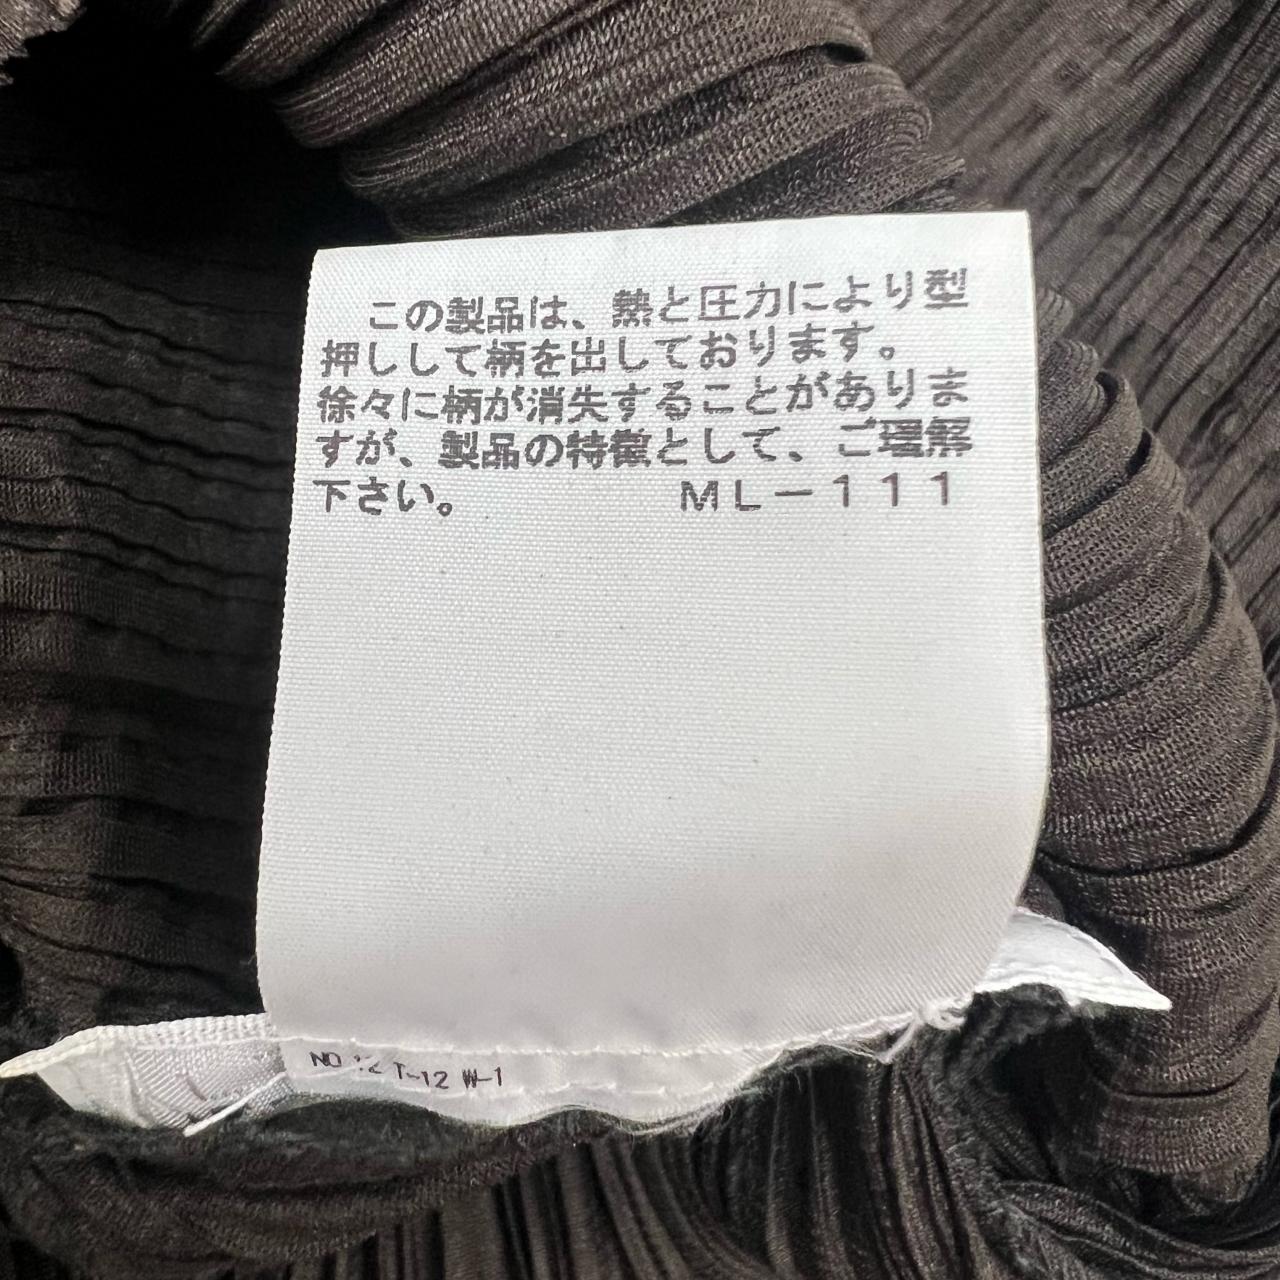 この製品は、熱と圧力により型
押しして柄を出しております。
徐々に柄が消失することがありま
すが、製品の特徴として、ご理解
下さい。 ML－111
NO 12 T-12 W-1